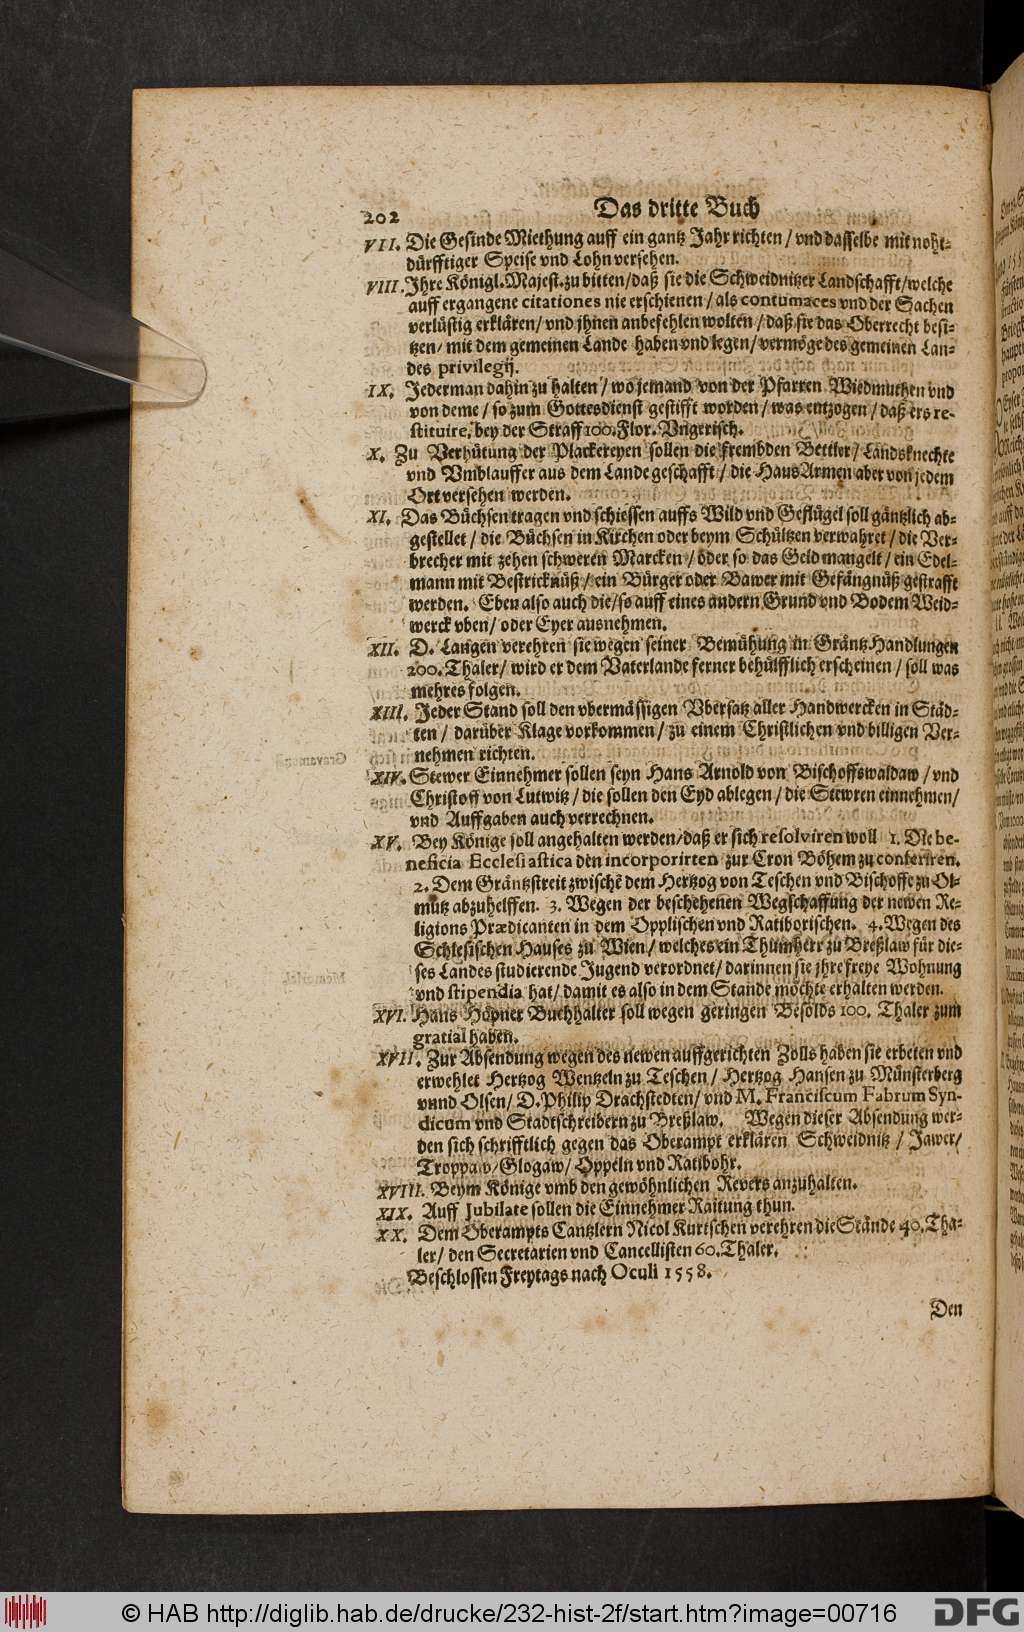 202 Das dritte Buch
VII. Die Gesinde Miethung auff ein gantz Jahr richten / vnd dasselbe mit noht-
dürfftiger Speise vnd Lohn versehen.
VIII. Ihre Königl. Majest. zu bitten / daß sie die Schweidnitzer Landschafft / welche
auff ergangene citationes nie erschienen / als contumaces vnd der Sachen
verlüstig erklären / vnd jhnen anbefehlen wolten / daß sie das Oberrecht besi-
tzen / mit dem gemeinen Lande haben vnd legen / vermöge des gemeinen Lan-
des privilegij.
IX. Jederman dahin zu halten / wo jemand von der Pfarren Wiedmuthen vnd
von deme / so zum Gottesdienst gestifft worden / was entzogen / daß ers re-
stituire, bey der Straff 100. Flor. Vngerisch.
X. Zu Verhütung der Plackereyen sollen die frembden Bettler / Landsknechte
vnd Vmblauffer aus dem Lande geschafft / die Haus Armen aber von jedem
Ort versehen werden.
XI. Das Büchsen tragen vnd schiessen auffs Wild vnd Geflügel soll gäntzlich ab-
gestellet / die Büchsen in Kirchen oder beym Schültzen verwahret / die Ver-
brecher mit zehen schweren Marcken / oder so das Geld mangelt / ein Edel-
mann mit Bestricknüß / ein Bürger oder Bawer mit Gefängnüß gestrafft
werden. Eben also auch die / so auff eines andern Grund vnd Bodem Weid-
werck vben / oder Eyer ausnehmen.
XII. D. Langen verehren sie wegen seiner Bemühung in Gräntz Handlungen
200. Thaler / wird er dem Vaterlande ferner behülfflich erscheinen / soll was
mehres folgen.
XIII. Jeder Stand soll den vbermässigen Vbersatz aller Handwercken in Städ-
ten / darüber Klage vorkommen / zu einem Christlichen vnd billigen Ver-
nehmen richten.
XIV. Stewer Einnehmer sollen seyn Hans Arnold von Bischoffswaldaw / vnd
Christoff von Lutwitz / die sollen den Eyd ablegen / die Stewren einnehmen /
vnd Auffgaben auch verrechnen.
XV. Bey Könige soll angehalten werden / daß er sich resolviren woll 1. Die be-
neficia Ecclesiastica den incorporirten zur Cron Böhem zu conferiren.
2. Dem Gräntzstreit zwischē dem Hertzog von Teschen vnd Bischoffe zu Ol-
mütz abzuhelffen. 3. Wegen der beschehenen Wegschaffung der newen Re-
ligions Prædicanten in dem Opplischen vnd Ratiborischen. 4. Wegen des
Schlesischen Hauses zu Wien / welches ein Thumherr zu Breßlaw für die-
ses Landes studierende Jugend verordnet / darinnen sie jhre freye Wohnung
vnd stipendia hat / damit es also in dem Stande möchte erhalten werden.
XVI. Hans Höpner Buchhalter soll wegen geringen Besolds 100. Thaler zum
gratial haben.
XVII. Zur Absendung wegen des newen auffgerichten Zolls haben sie erbeten vnd
erwehlet Hertzog Wentzeln zu Teschen / Hertzog Hansen zu Münsterberg
vnnd Olsen / D. Philip Drachstedten / vnd M. Franciscum Fabrum Syn-
dicum vnd Stadtschreibern zu Breßlaw. Wegen dieser Absendung wer-
den sich schrifftlich gegen das Oberampt erklären Schweidnitz / Jawer /
Troppaw / Glogaw / Oppeln vnd Ratibohr.
XVIII. Beym Könige vmb den gewöhnlichen Revers anzuhalten.
XIX. Auff Jubilate sollen die Einnehmer Raitung thun.
XX. Dem Oberampts Cantzlern Nicol Kurtschen verehren die Stände 40. Tha-
ler / den Secretarien vnd Cancellisten 60. Thaler.
Beschlossen Freytags nach Oculi 1558.
Den
© HAB http://diglib.hab.de/drucke/232-hist-2f/start.htm?image=00716
DFG